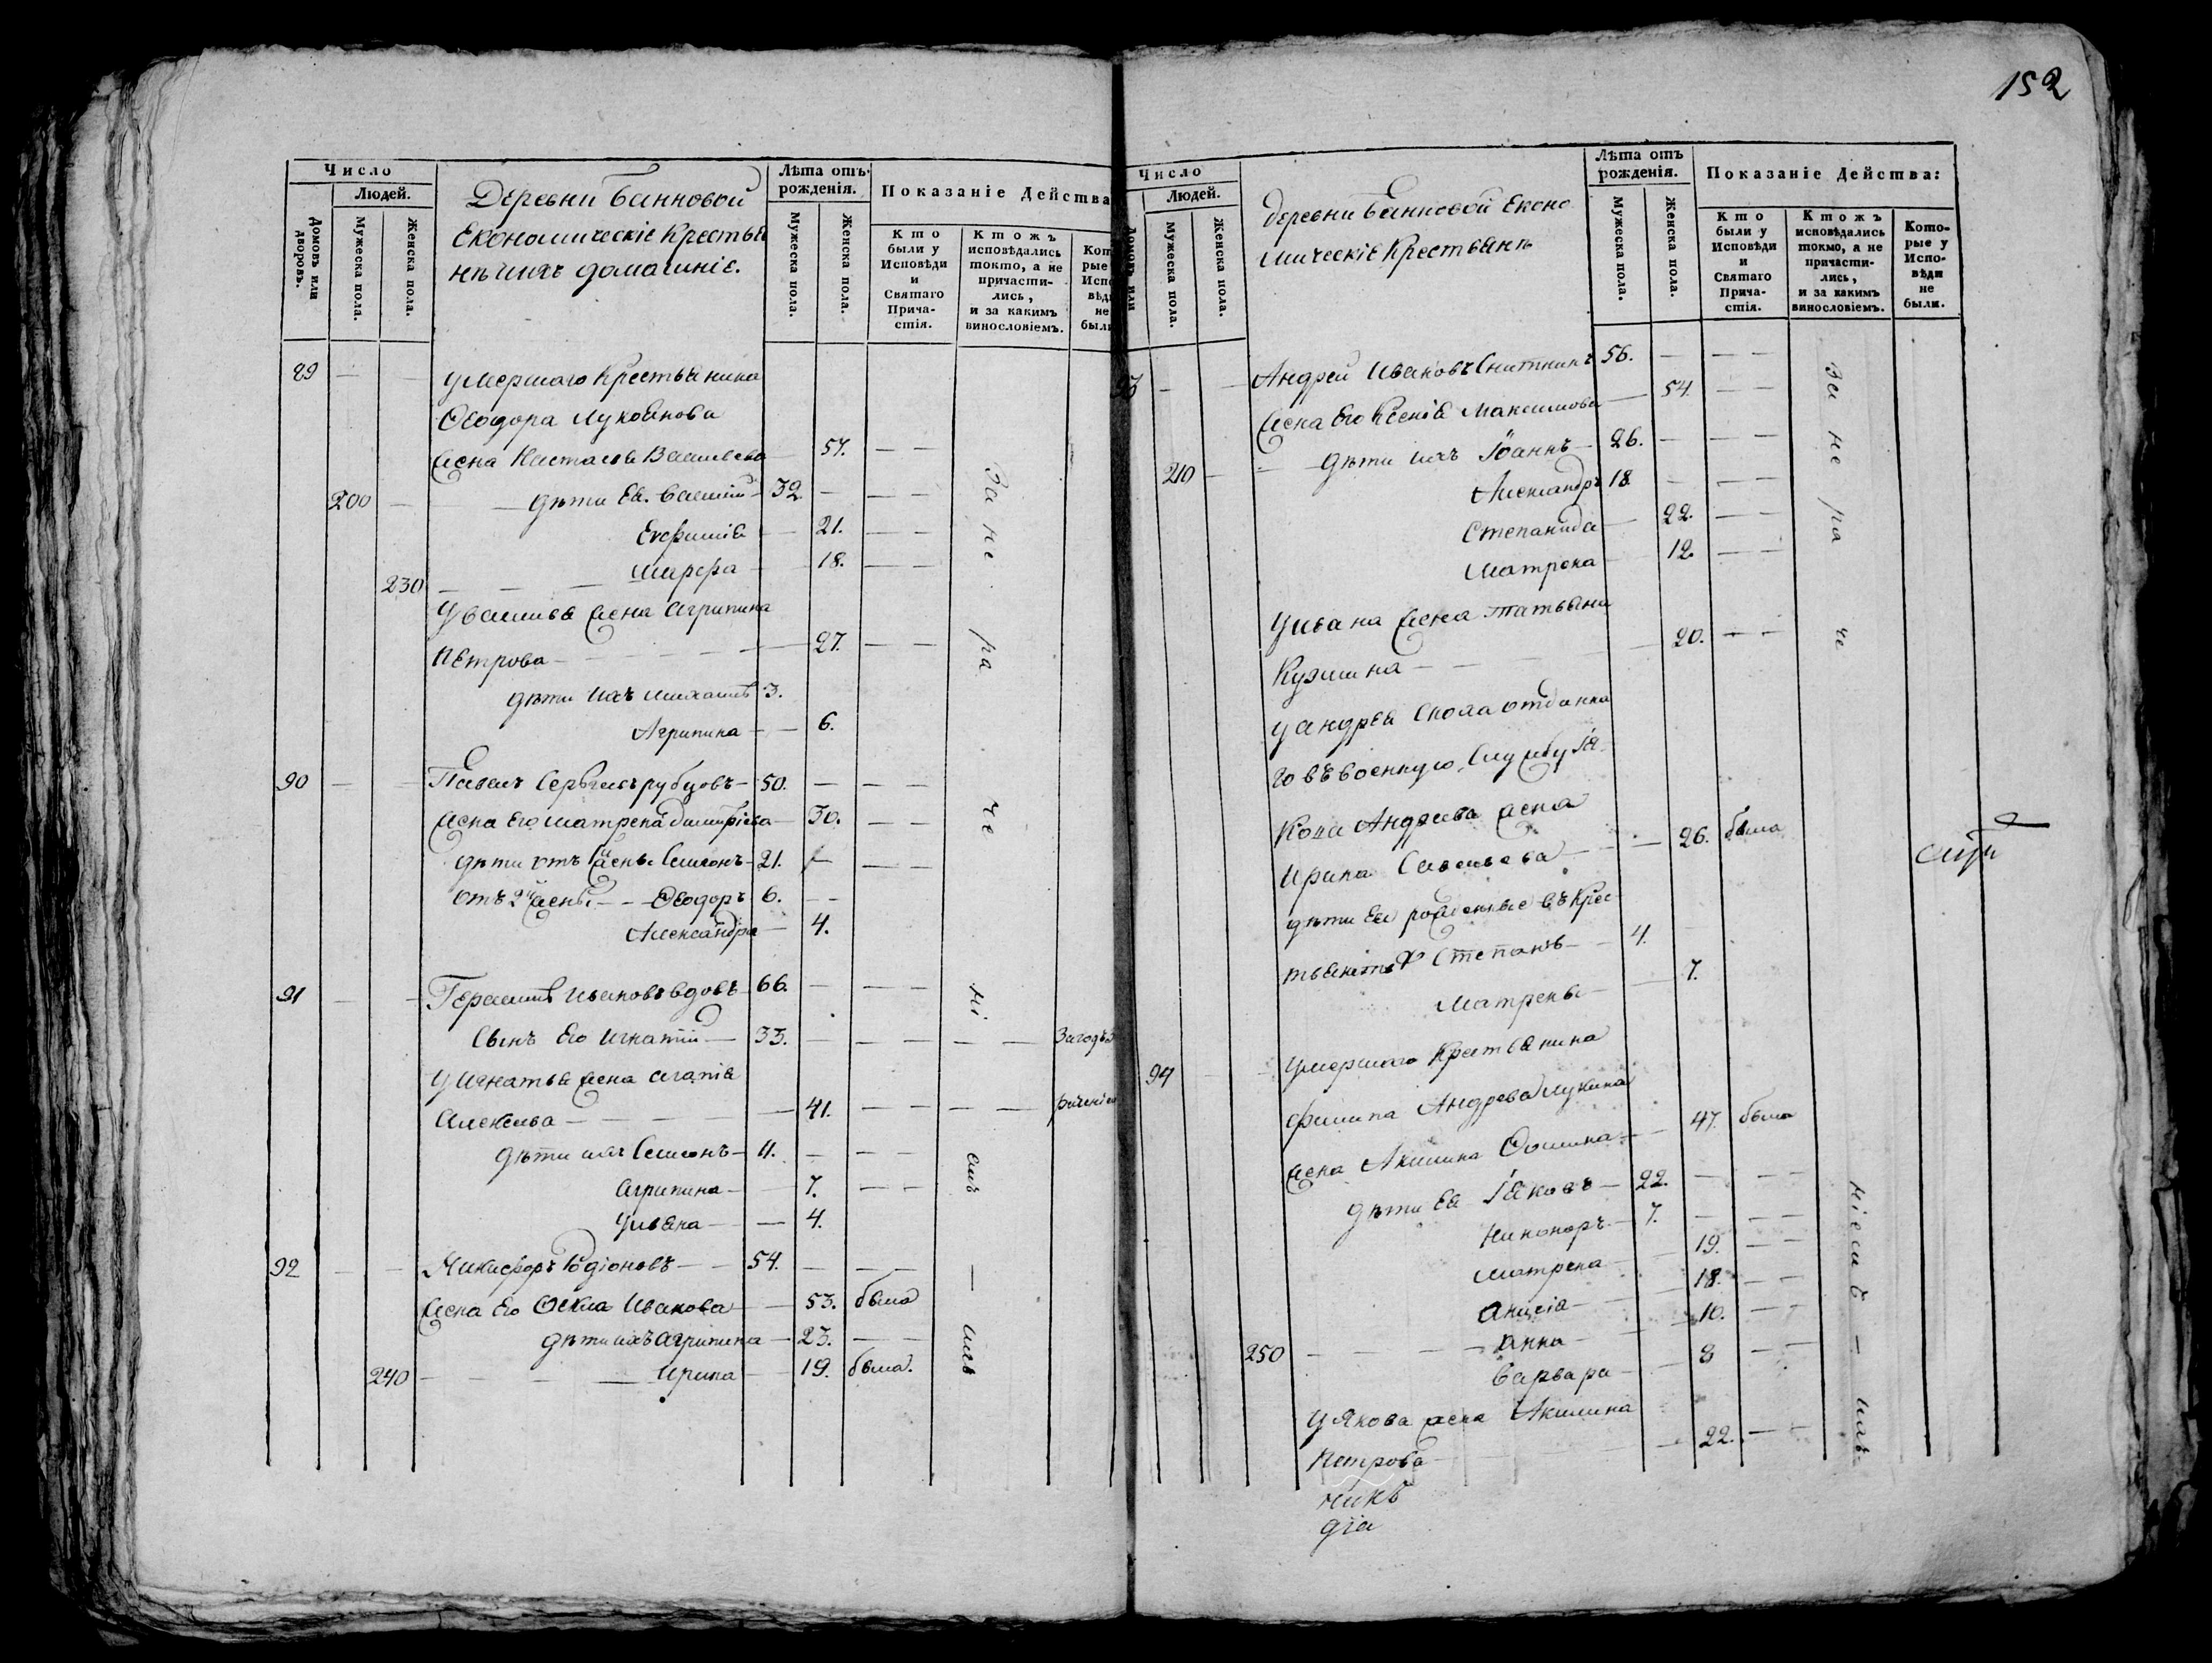 152
Число
Людей.
Домовъ или дворовъ.
Мужеска пола.
Женска пола.
Деревни Банновой
Економическіе Крестья
не и ихъ домашніе.
Лѣта отъ рожденія.
Мужеска пола.
Женска пола.
Показаніе Действа
Кто были у Исповѣди и Святаго Прича-стія.
Ктожъ исповѣдались токмо, а не причасти-лись, и за какимъ винословіемъ.
89 — — умершаго Крестьянина
Ѳеодора Лукоянова
жена Настасья Васильева — 57. — —
200 — — дѣти Ея. Василій — 32. — — —
Евфимія — 21. — —
230 — — — Марфа — 18. — —
У Василья жена Агрипина
Петрова — — — — 27. — —
дѣти ихъ Михаилъ 3.
Агрипина — — 6.
90 — — Павелъ Сергеевъ рубцовъ — 50. — — —
жена Его Матрена Димитріева — 30. — —
дѣти отъ 1й жены Симеонъ — 21. — — —
отъ 2й жены — — Ѳеодоръ 6. — —
Александра — 4.
91 — — Герасимъ Ивановъ вдовъ — 66. — — —
Сынъ Его Игнатій — 33. — — — — — За годъ
У Игнатья жена Агапія
Алексѣева — — — — — 41. — — — —
дѣти ихъ Симеонъ — 11. — — —
Агрипина — — 7. — —
Ульяна — — 4.
92 — — Никифоръ Родіоновъ — — 54. — — —
жена Его Ѳекла Иванова — — 53. была
дѣти ихъ Агрипина — 23. — —
240 — — — — Ирина — — 19. была.
За не ра че ні емъ — имъ
Число
Людей.
Мужеска пола.
Женска пола.
деревни Банновой Еконо
мическіе Крестьяне
Лѣта отъ рожденія.
Мужеска пола.
Женска пола.
Показаніе Действа:
Кто были у Исповѣди и Святаго Прича-стія.
Ктожъ исповѣдались токмо, а не причасти-лись, и за какимъ винословіемъ.
Кото-рые у Испо-вѣди не были.
Андрей Ивановъ 56. — — —
жена Его Ксенія Максимова — 54. — —
210 — — дѣти ихъ Іоаннъ — 26. — — —
Александръ 18. — — —
Степанида — 22. — —
Матрена — 12. — —
У Ивана жена Татьяна
Кузмина — — — 20. — —
У Андрея
го въ военную Службу Іа
кова Андреева жена
Ирина Савельева — — — 26. была
дѣти Ея рожденые въ Крес
тьянствѣ Степанъ — — 4.
Матрена — — 7.
94 — Умершаго Крестьянина
Филипа Андреева Лукина
жена Акилина Ѳомина — — 47. была
дѣти Ея Іяковъ — 22. — — —
Никоноръ — 7. — — —
Матрена — — 19. — —
Анисія — — 18. — —
Анна — — 10. — —
250 — — — Варвара — — 8 — —
У Якова жена Акилина
Петрова — — 22. — —
За не ра че ніемъ — имъ
никъ
діа